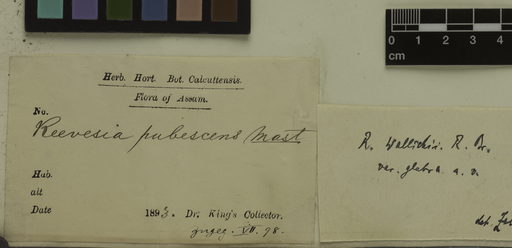 Herb. Hort. Bot. Calcuttensis.
Flora of Assam.
No.
Reevesia pubescens Mast
Hab.
alt
Date 1893. Dr. King's Collector.
VII. 98.
cm 1 2 3 4
R. Wallichii. R. Br.
var. glabra
det.